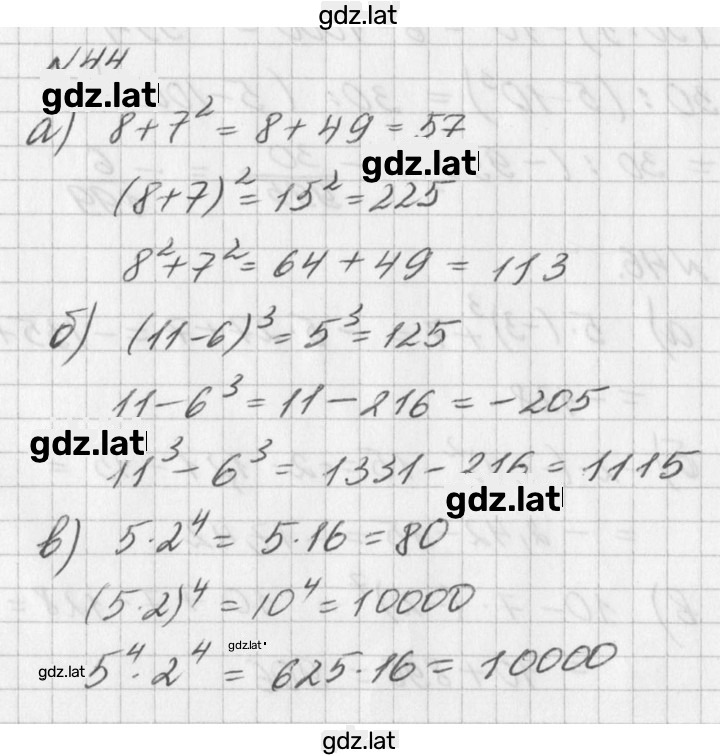 gdz.lat
№44
gdz.lat
а) 8+7² = 8+49 = 57
gdz.lat
(8+7)² = 15² = 225
8²+7² = 64+49 = 113
б) (11-6)³ = 5³ = 125
11-6³ = 11-216 = -205
gdz.lat
11³-6³ = 1331-216 = 1115
gdz.lat
в) 5·2⁴ = 5·16 = 80
(5·2)⁴ = 10⁴ = 10000
gdz.lat
gdz.lat
5⁴·2⁴ = 625·16 = 10000
gdz.lat